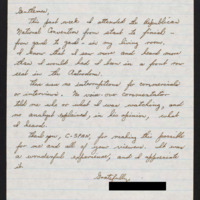 Gentlemen,
This past week I attended the Republican
National Convention from start to finish -
from gavel to gavel - in my living room.
I know that I saw more and heard more
than I would had I been in a front row
seat in the Astrodome.
There were no interruptions for commercials
or interviews. No news commentator
told me who or what I was watching, and
no analyst explained, in his opinion, what
I heard.
Thank you, C-SPAN, for making this possible
for me and all of your viewers. It was
a wonderful experience, and I appreciate
it.
Gratefully,